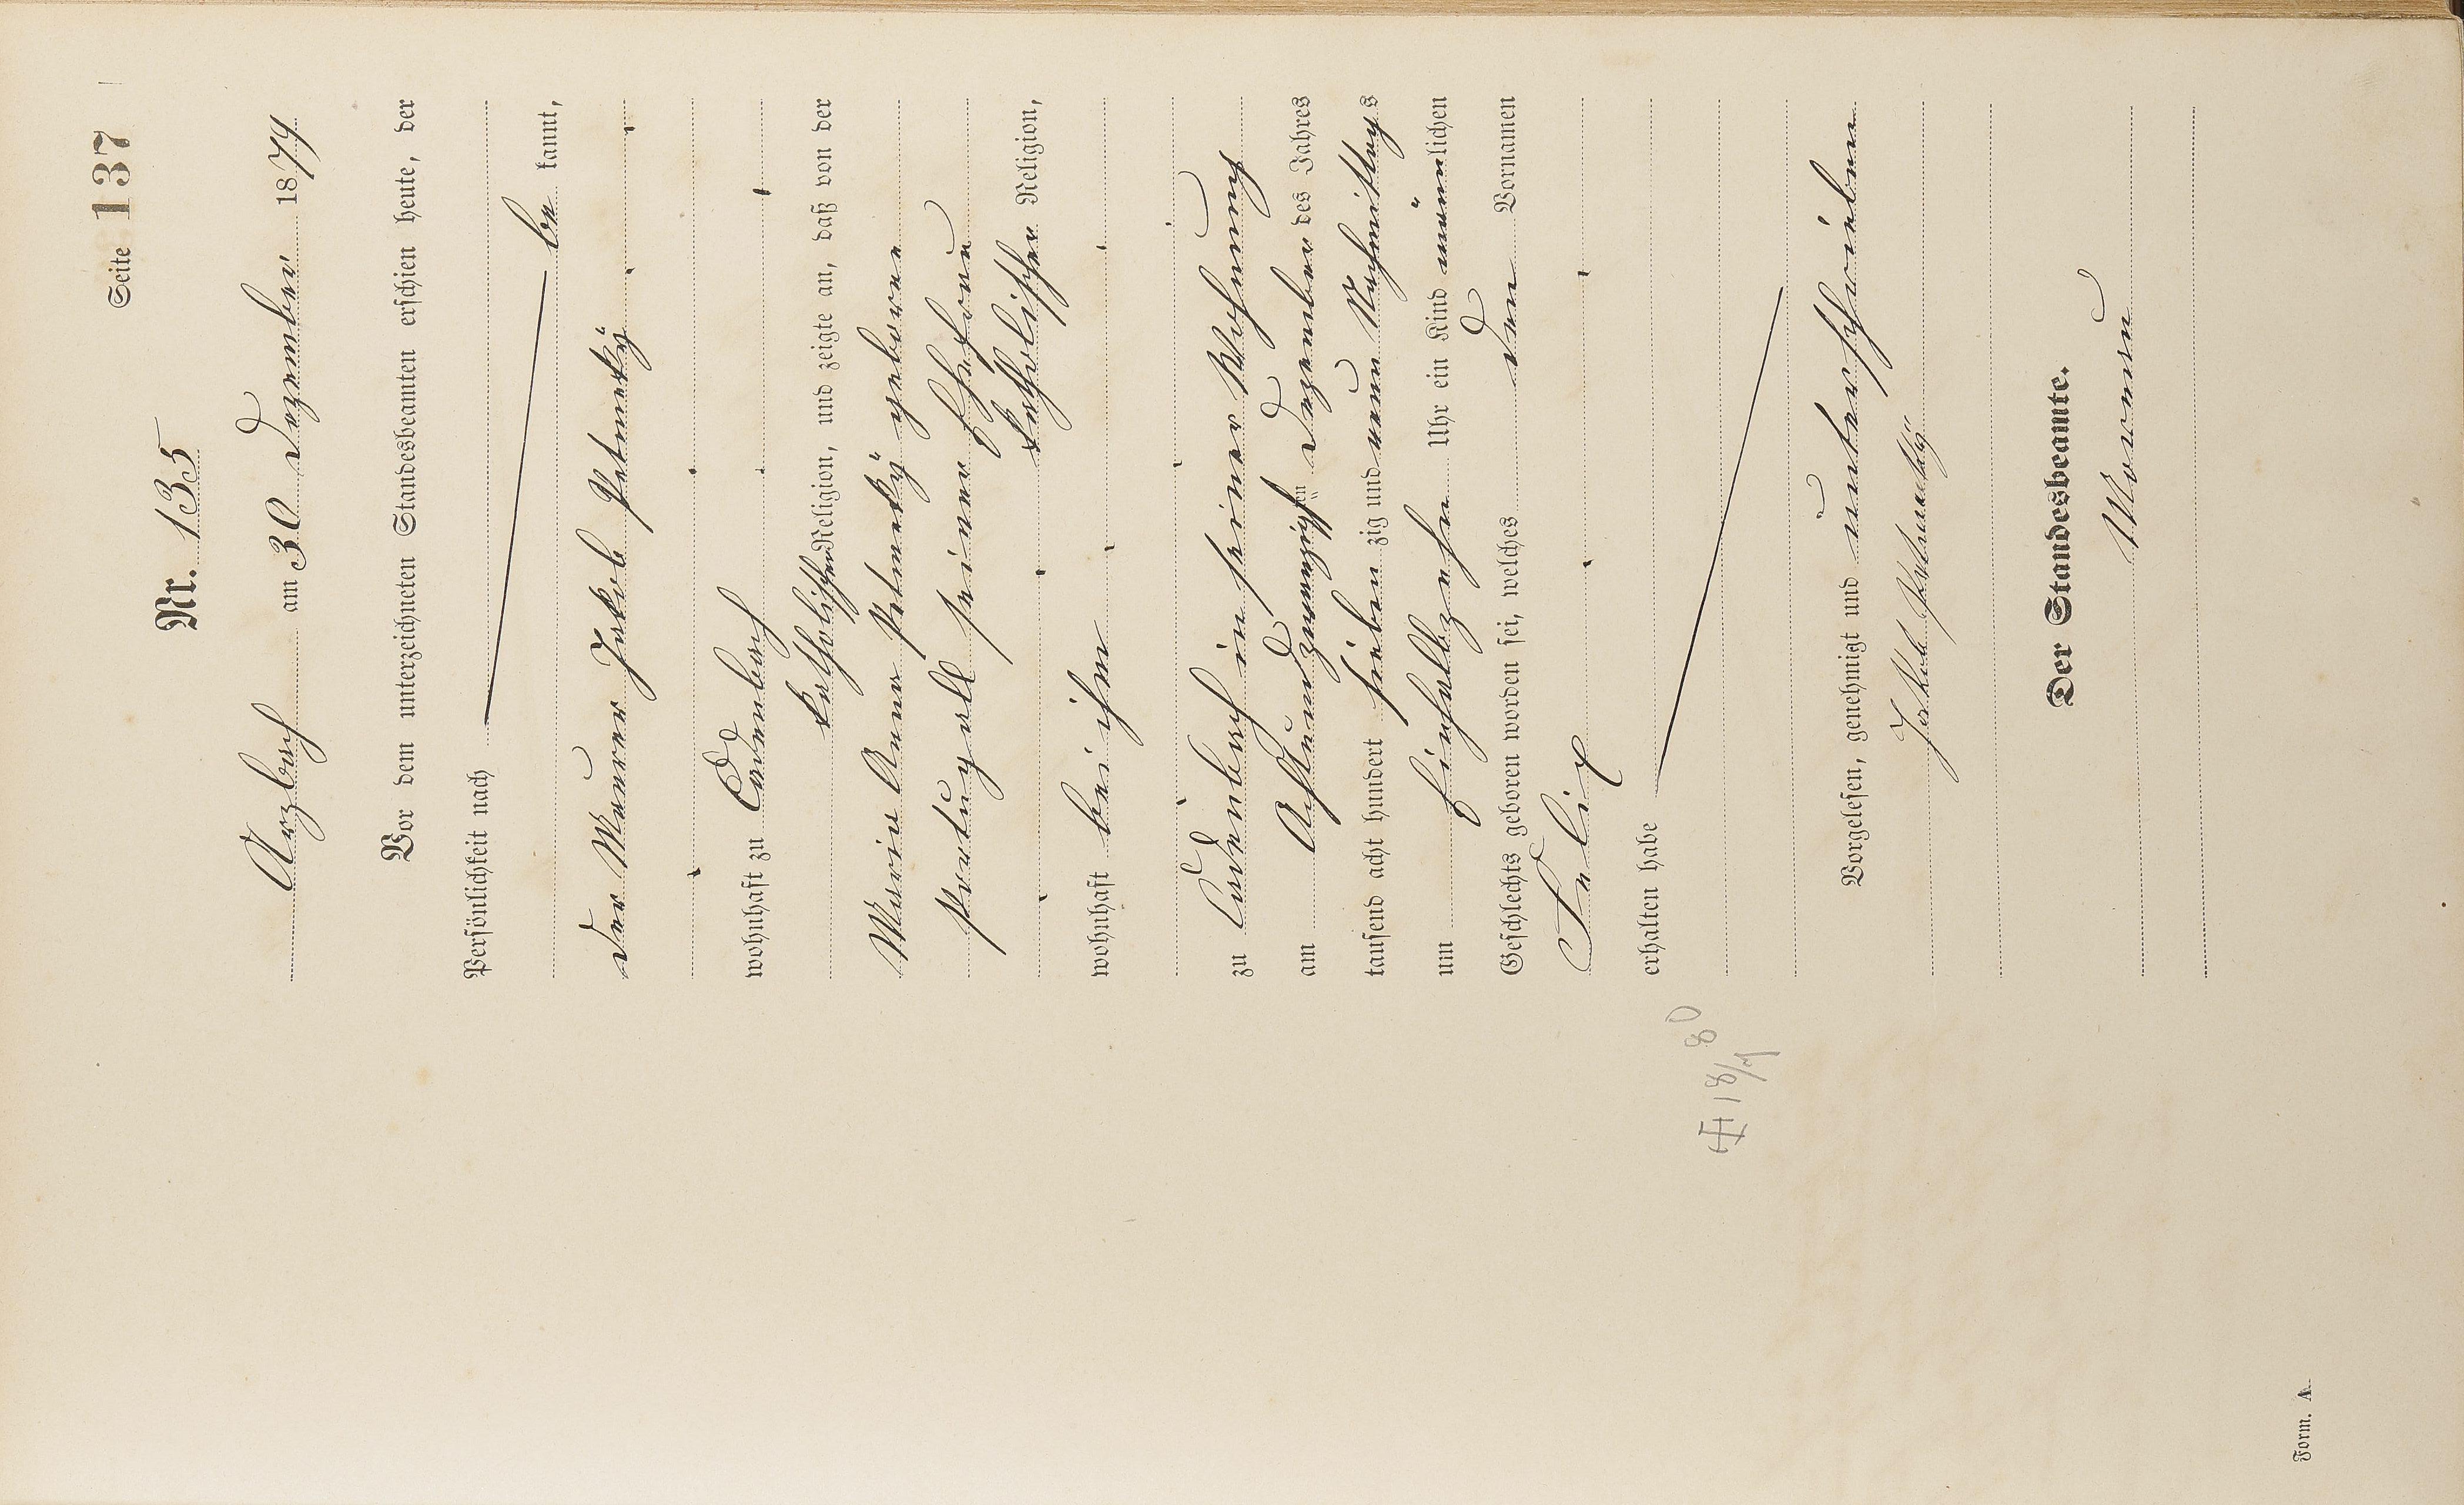 Seite 137
Nr. 135
Arzbach am 30 Dezember 1879
Vor dem unterzeichneten Standesbeamten erschien heute, der
Persönlichkeit nach
be kannt,
der Maurer Jakob
wohnhaft zu Cadenbach
katholischer Religion, und zeigte an, daß von der
Maria Anna geborene
Portugall seiner Ehefrau
katholischer Religion,
wohnhaft bei ihm
zu Cadenbach in seiner Wohnung
am Achtundzwanzigsten Dezember des Jahres
tausend acht hundert sieben zig und neun Nachmittags
um Einhalbzehn Uhr ein Kind männlichen
Geschlechts geboren worden sei, welches den Vornamen
Felix
erhalten habe
18/1 80
Vorgelesen, genehmigt und unterschrieben
Jakob
Der Standesbeamte.
Form. A.